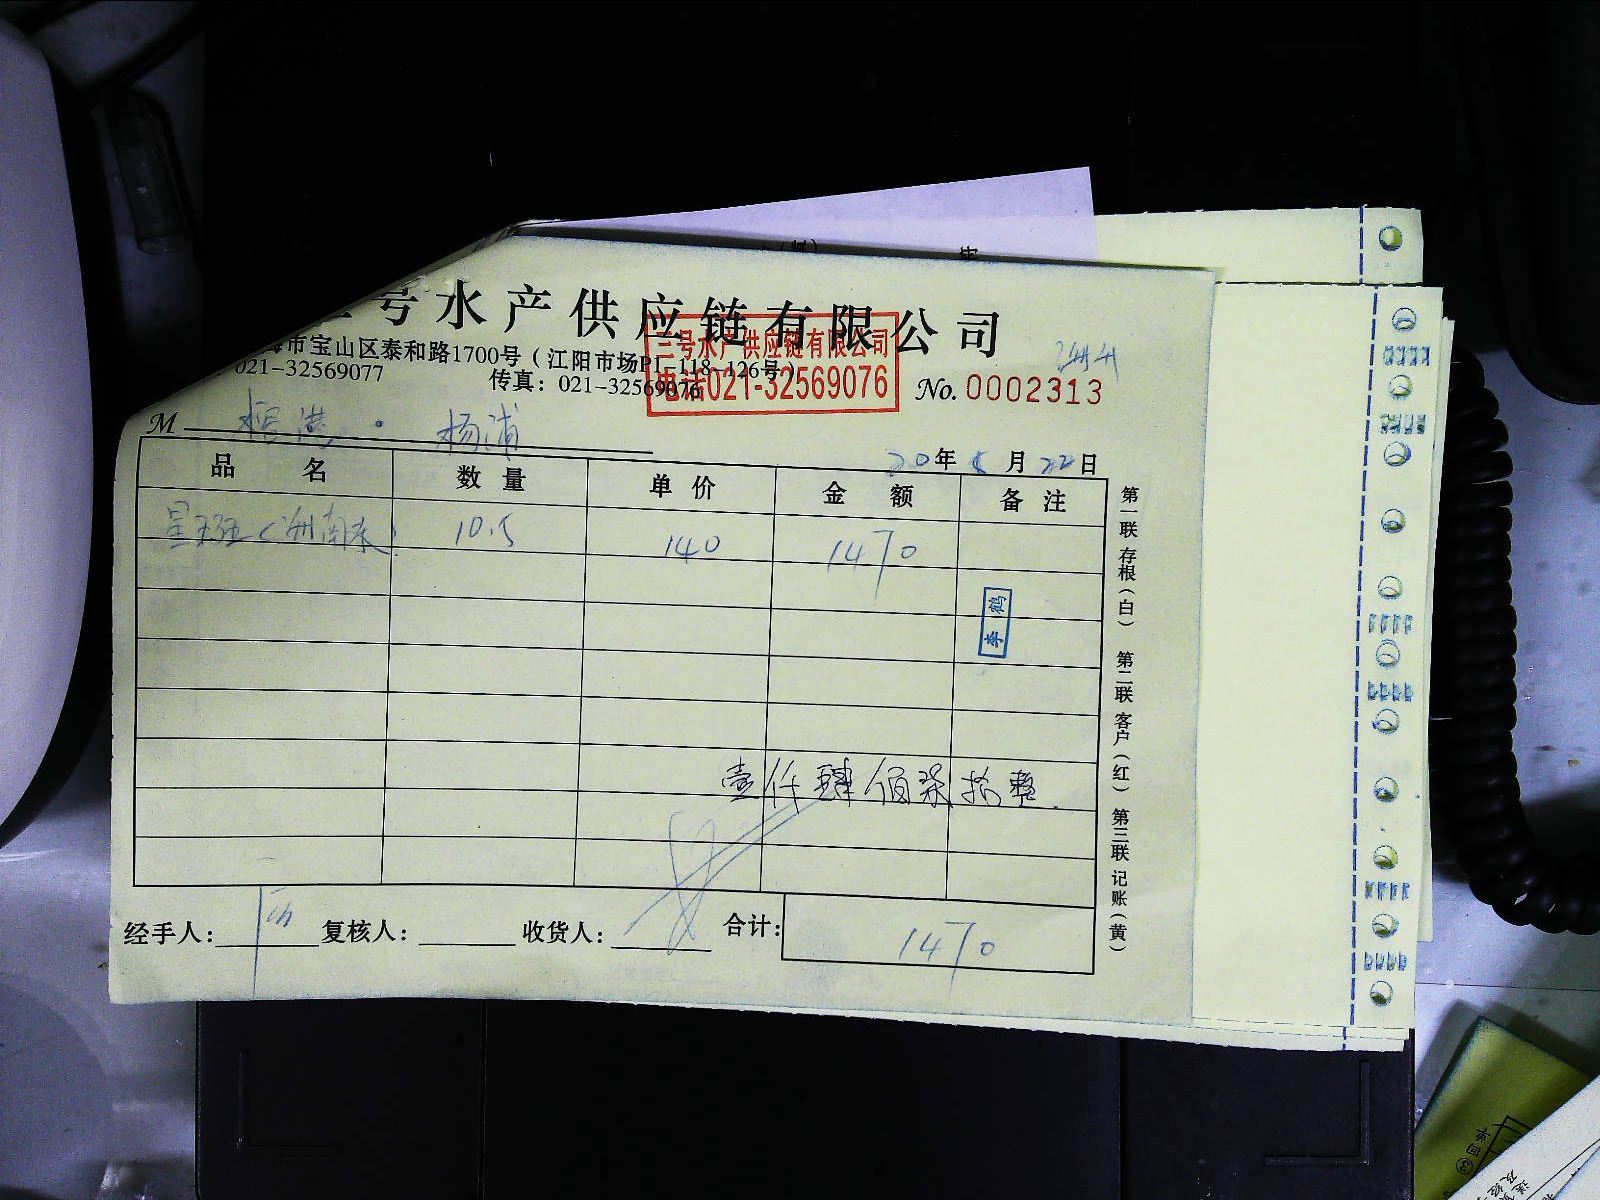 号水产供应链有限公司
市宝山区泰和路1700号（江阳市场P1-118-126号）
021-32569077 传真：021-32569076
三号水产供应链有限公司
电话021-32569076
No. 0002313
M 杨浦
20年 月22日
品名 数量 单价 金额 备注
10.5 140 1470
李鹤
壹仟肆佰柒拾整
经手人： 复核人： 收货人： 合计： 1470
第一联 存根（白） 第二联 客户（红） 第三联 记账（黄）